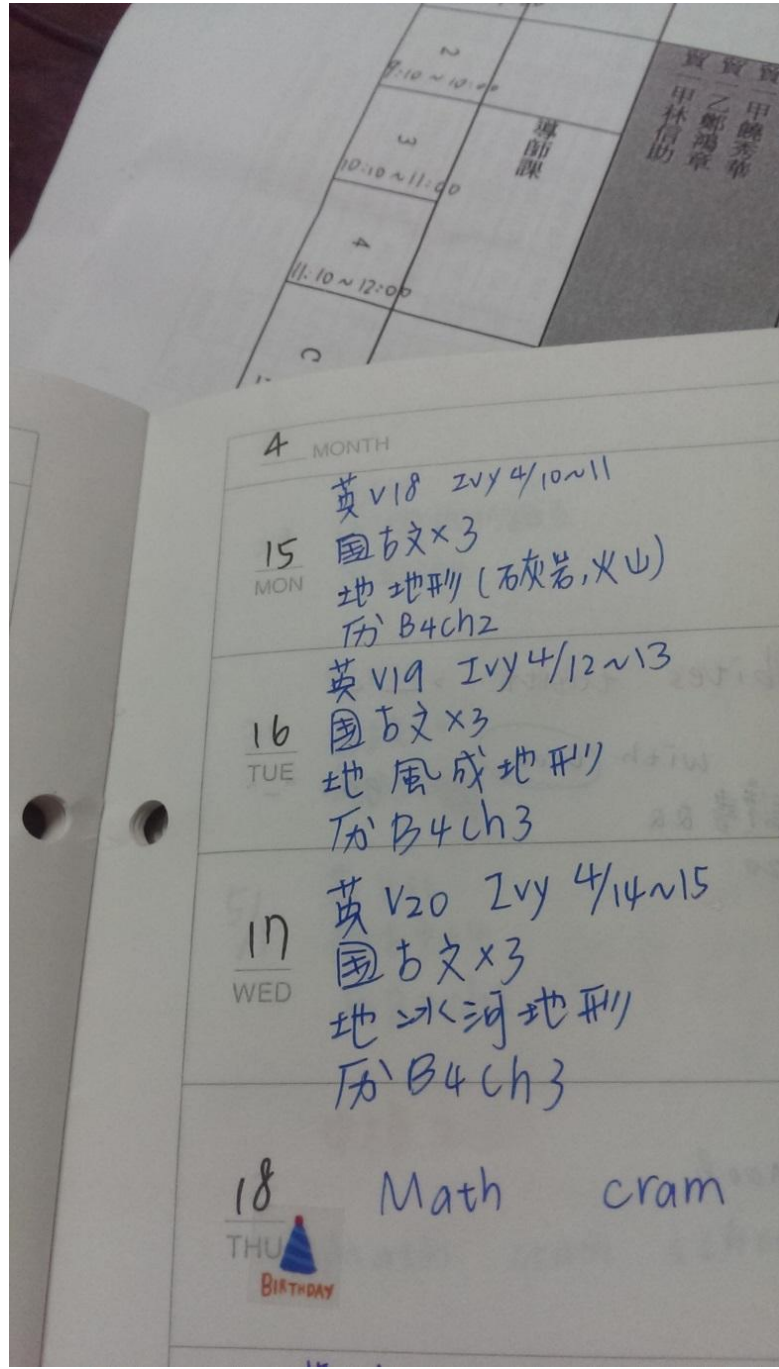 2
9:10~10:00
3
10:10~11:00
導師課
4
11:10~12:00
C
賀一甲饒秀華
賀一乙鄭鴻章
賀一甲林信助
4 MONTH
15 MON
英 V18 Ivy 4/10~11
国 古文×3
地 地形 (石灰岩,火山)
历 B4ch2
16 TUE
英 V19 Ivy 4/12~13
国 古文×3
地 風成地形
历 B4ch3
17 WED
英 V20 Ivy 4/14~15
国 古文×3
地 冰河地形
历 B4ch3
18 THU
Math cram
BIRTHDAY